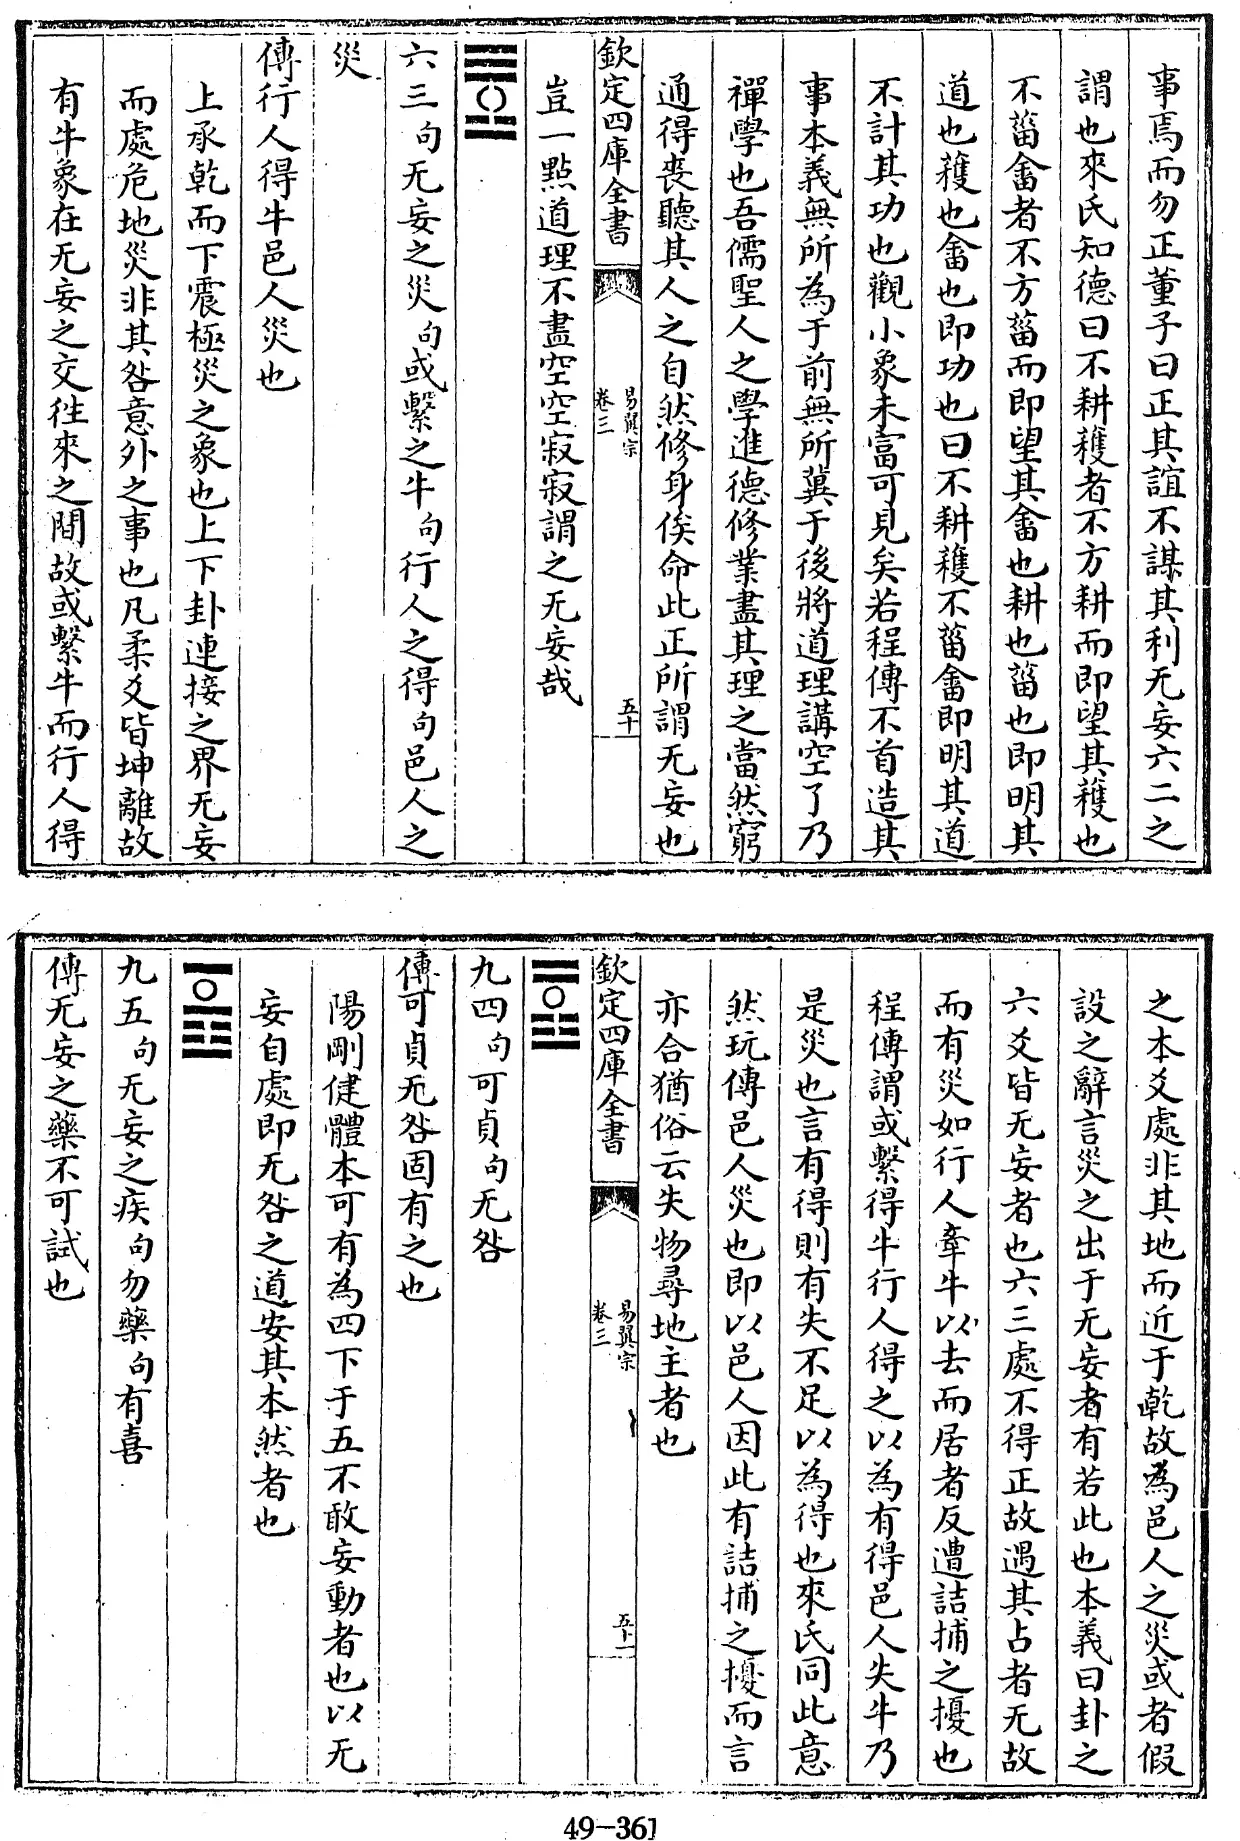 事焉而勿正董子曰正其誼不謀其利无妄六二之
謂也來氏知德曰不耕穫者不方耕而即望其穫也
不菑畬者不方菑而即望其畬也耕也菑也即明其
道也穫也畬也即功也曰不耕穫不菑畬即明其道
不計其功也觀小象未富可見矣若程傳不首造其
事本義無所為于前無所冀于後將道理講空了乃
禪學也吾儒聖人之學進德修業盡其理之當然窮
通得喪聽其人之自然修身俟命此正所謂无妄也
欽定四庫全書
易翼宗
卷三
五十
豈一點道理不盡空空寂寂謂之无妄哉
六三句无妄之災句或繫之牛句行人之得句邑人之
災
傳行人得牛邑人災也
上承乾而下震極災之象也上下卦連接之界无妄
而處危地災非其咎意外之事也凡柔爻皆坤離故
有牛象在无妄之交徃來之間故或繫牛而行人得
之本爻處非其地而近于乾故為邑人之災或者假
設之辭言災之出于无妄者有若此也本義曰卦之
六爻皆无妄者也六三處不得正故遇其占者无故
而有災如行人牽牛以去而居者反遭詰捕之擾也
程傳謂或繫得牛行人得之以為有得邑人失牛乃
是災也言有得則有失不足以為得也來氏同此意
然玩傳邑人災也即以邑人因此有詰捕之擾而言
亦合猶俗云失物尋地主者也
欽定四庫全書
易翼宗
卷三
五十一
九四句可貞句无咎
傳可貞无咎固有之也
陽剛健體本可有為四下于五不敢妄動者也以无
妄自處即无咎之道安其本然者也
九五句无妄之疾句勿藥句有喜
傳无妄之藥不可試也
49-361